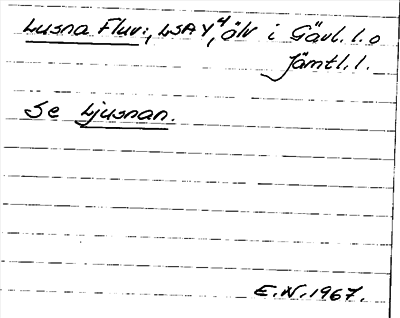 Lusna Fluv:, LSA Y,4 älv i Gävl.l.o
Jämtl.l.
Se Ljusnan.
E.N.1967.